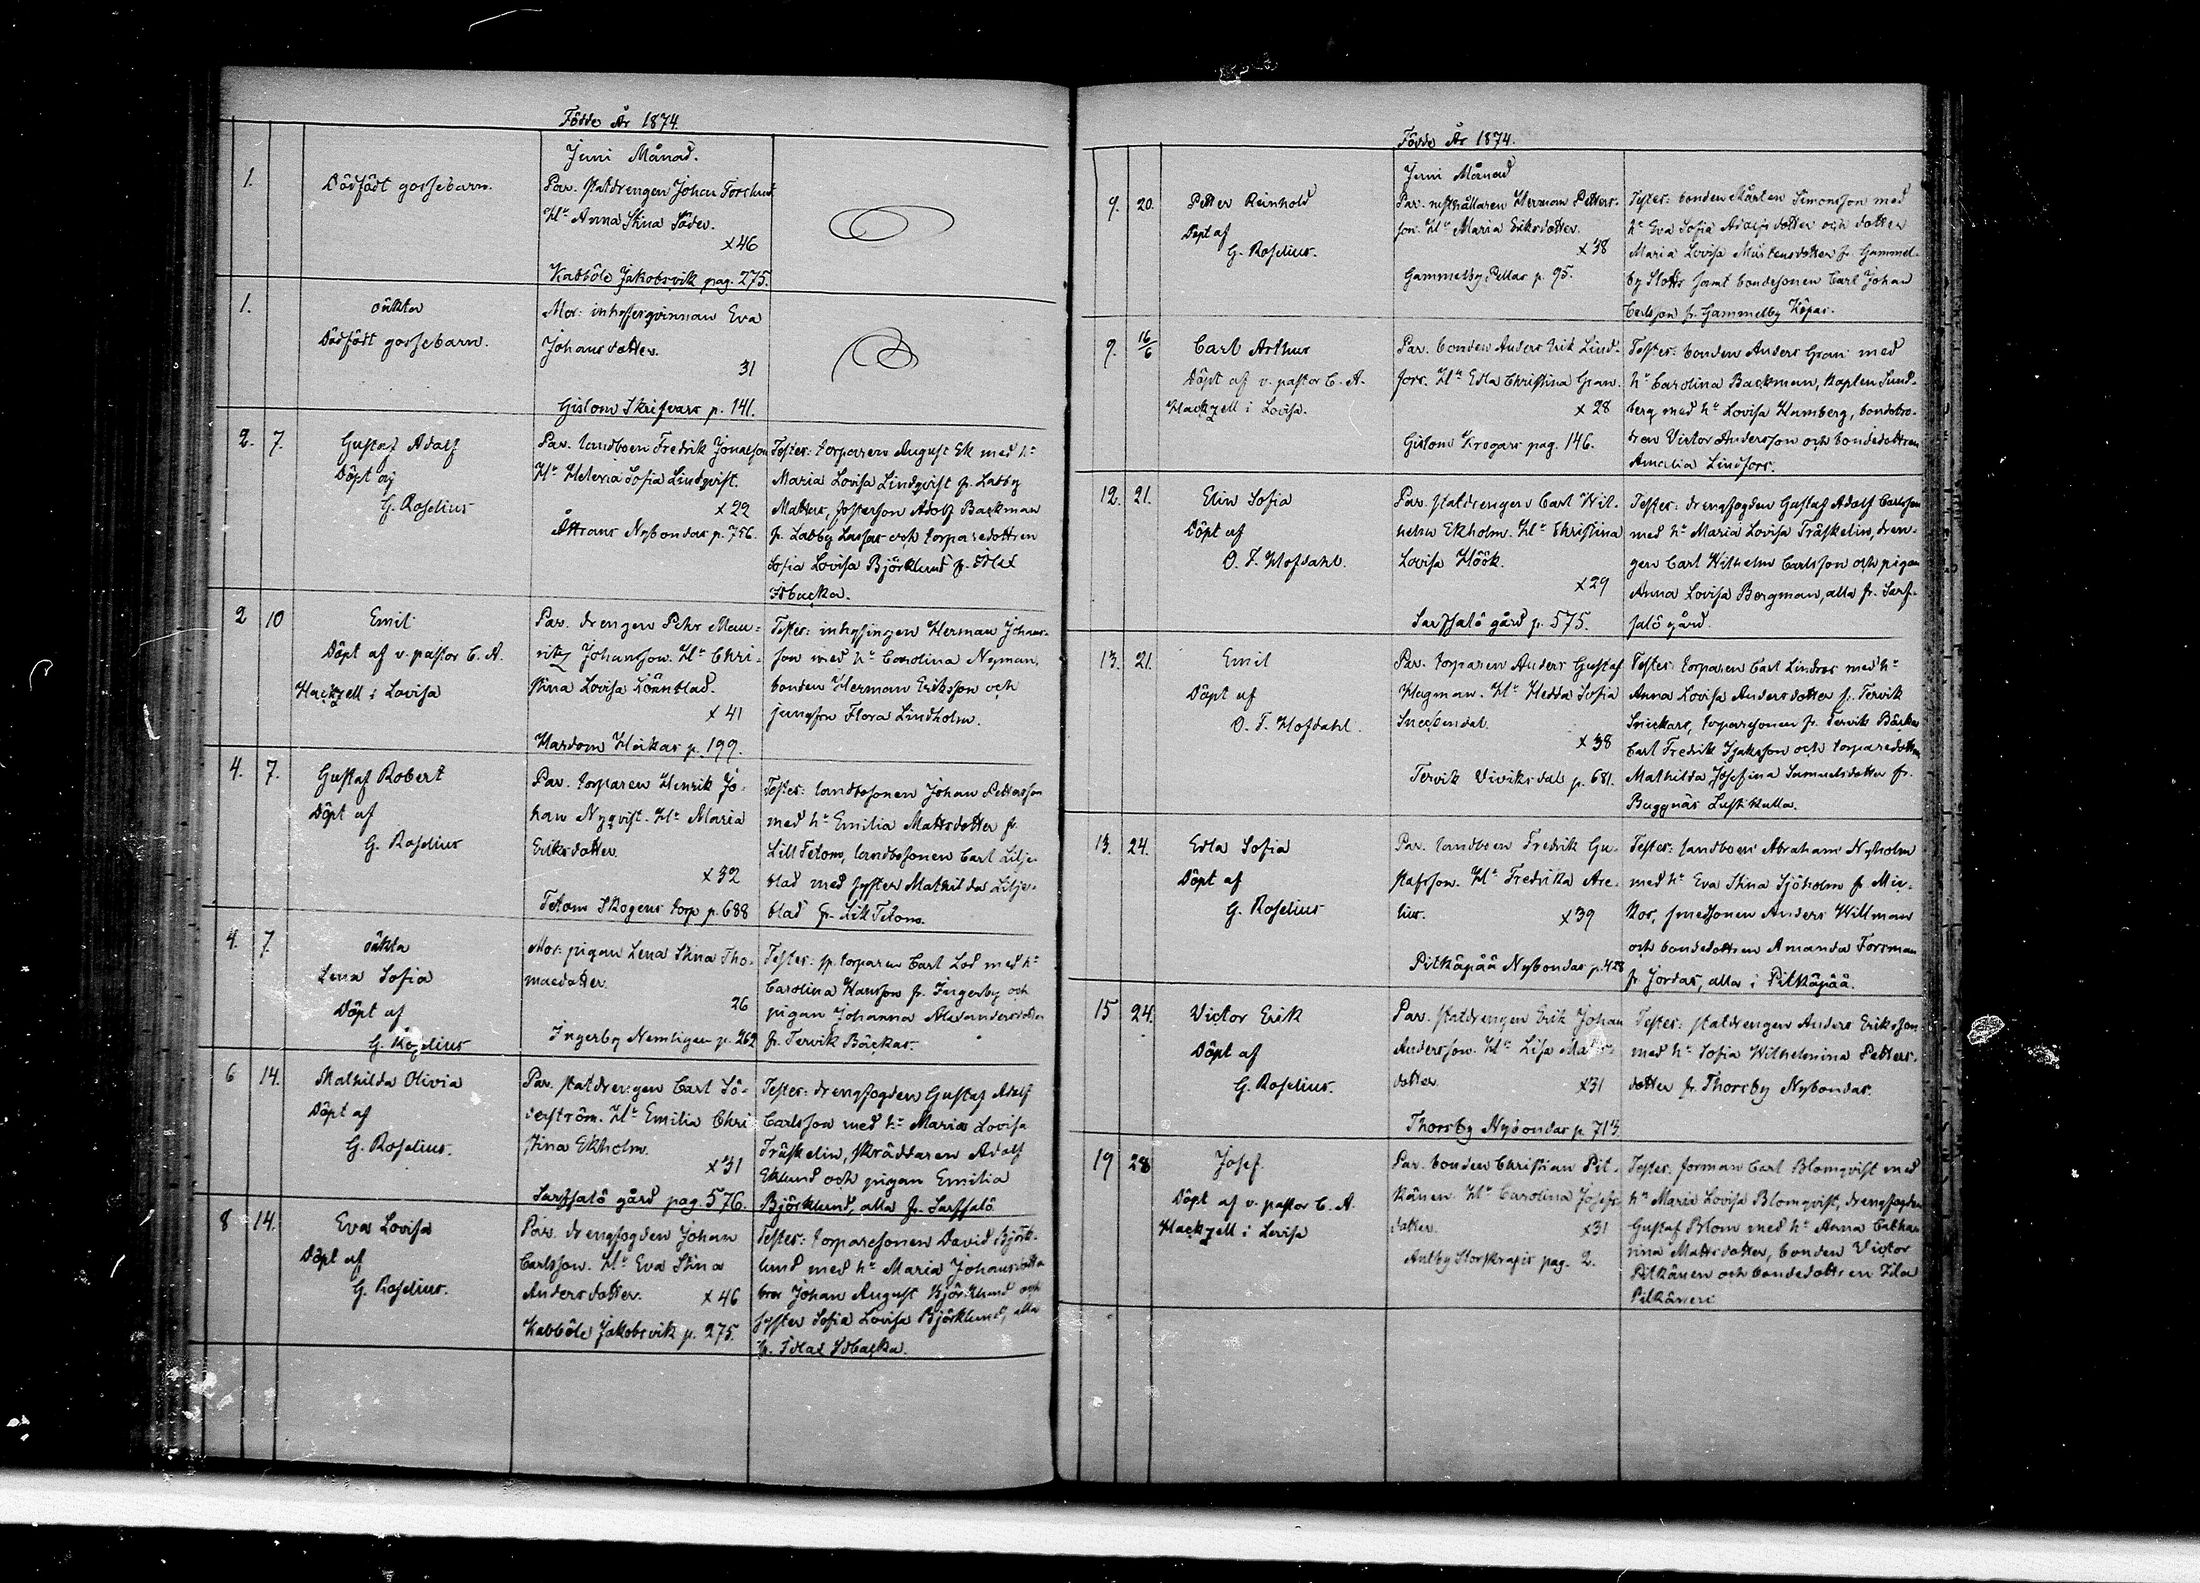 Födde År 1874.
Juni Månad.
1.
Dödfödt gossebarn.
Par. statdrengen Johan Forslund
Hu Anna Stina Söder.
x 46
Kabböle Jakobsvik pag. 275.
1.
oäkta
Dödfödt gossebarn.
Mor: inhysesqvinnan Eva
Johansdotter.
31
Gislom Skrifvars p. 141.
2. 7.
Gustaf Adolf
Döpt af
G. Roselius
Par. landboen Fredrik Jonasson
Hu Helena Sofia Lindqvist.
x 22
Åttrans Nybondas p. 756.
Tester: torparen August Ek med hu
Maria Lovisa Lindqvist fr. Labby
Mattus, fosterson Adolf Backman
fr. Labby Lassas och torparedottren
Sofia Lovisa Björklund fr.
Sbacka.
2 10
Emil
Döpt af v. pastor C. A.
Hackzell i Lovisa
Par. drengen Pehr Mau-
ritz Johansson. Hu Chri-
stina Lovisa Lönnblad.
x 41
Hardom Heikas p. 199.
Tester: inhysingen Herman Johans-
son med hu Carolina Nyman,
bonden Herman Eriksson och
jungfru Flora Lindholm.
4. 7.
Gustaf Robert
Döpt af
G. Roselius
Par. torparen Henrik Jo-
han Nyqvist. Hu Maria
Eriksdotter.
x 32
Tetom Skogens torp p. 688
Tester: landbosonen Johan Pettersson
med hu Emilia Mattsdotter fr.
Lill Tetom, landbosonen Carl Lilje-
blad med syster Mathilda Lilje-
blad fr. Lill Tetom.
4. 7.
oäkta
Lena Sofia
Döpt af
G. Roselius
Mor: pigan Lena Stina Tho-
maedotter.
26
Ingerby Nemligen p. 262
Tester: sp. torparen Carl Lod med hu
Carolina Hansson fr. Ingerby och
pigan Johanna Alexandersdotter
fr. Tervik Bäckas.
6 14.
Mathilda Olivia
Döpt af
G. Roselius.
Par. statdrengen Carl Sö-
derström. Hu Emilia Chri
stina Ekholm.
x 31
Sarfsalö gård pag. 576.
Tester: drengfogden Gustaf Adolf
Carlsson med hu Maria Lovisa
Träskelin, skräddaren Adolf
Eklund och pigan Emilia
Björklund, alla fr. Sarfsalö
8 14.
Eva Lovisa
Döpt af
G. Roselius.
Par. drengfogden Johan
Carlsson. Hu Eva Stina
Andersdotter. x 46
Kabböle Jakobsvik p. 275.
Tester: torparesonen David Björk-
lund med hu Maria Johansdotter
bror Johan August Björklund och
syster Sofia Lovisa Björklund, alla
fr. Sbacka.
Födde År 1874.
Juni Månad
9. 20.
Petter Reinhold
Döpt af
G. Roselius.
Par. rusthållaren Herman Petters-
son. Hu Maria Eriksdotter.
x 38
Gammelby Pellas p. 95.
Tester: bonden Mårten Simonsson med
hu Eva Sofia Adolfsdotter och dotter
Maria Lovisa Mårtensdotter fr. Gammel-
by Slotts samt bondesonen Carl Johan
Carlsson fr. Gammelby Köpas.
9. 16/6
Carl Arthur
Döpt af v. pastor C. A.
Hackzell i Lovisa.
Par. bonden Anders Erik Lind-
fors. Hu Edla Christina Gran.
x 28
Gislom Krogars pag. 146.
Tester: bonden Anders Gran med
hu Carolina Backman, kaplen Sund-
berg med hu Lovisa Hamberg, bondebro-
dren Victor Andersson och bondedottren
Amalia Lindfors.
12. 21.
Elin Sofia
Döpt af
O. F. Hofdahl.
Par. statdrengen Carl Wil-
helm Ekholm. Hu Christina
Lovisa Höök.
x 29
Sarfsalö gård p. 575.
Tester: drengfogden Gustaf Adolf Carlsson
med hu Maria Lovisa Träskelin, dren-
gen Carl Wilhelm Carlsson och pigan
Anna Lovisa Bergman, alla fr. Sarf-
salö gård.
13. 21.
Emil
Döpt af
O. F. Hofdahl.
Par. torparen Anders Gustaf
Hagman. Hu Hedda Sofia
x 38
Tervik Viviksdal p. 681.
Tester: torparen Carl Lindros med hu
Anna Lovisa Andersdotter fr. Tervik
Snickars, torparesonen fr. Tervik Bäckas
Carl Fredrik Isaksson och torparedottren
Mathilda Josefina Samuelsdotter fr.
Buggnäs
13. 24.
Edla Sofia
Döpt af
G. Roselius
Par. landboen Fredrik Gu-
stafsson. Hu Fredrika Are-
lius. x 39
Pitkäpää Nybondas p. 428
Tester: landboen Abraham Nyholm
med hu Eva Stina Sjöholm fr. Mic-
kos, smedsonen Anders Willman
och bondedottren Amanda Forsman
fr. Jordas, alla i Pitkäpää.
15 24.
Victor Erik
Döpt af
G. Roselius.
Par. statdrengen Erik Johan
Andersson. Hu Lisa Matts-
dotter. x 31
Thorsby Nybondas p. 713
Tester: statdrengen Anders Eriksson
med hu Sofia Wilhelmina Petters-
dotter fr. Thorsby Nybondas.
19 28
Josef
Döpt af v. pastor C. A.
Hackzell i Lovisa
Par. bonden Christian Pit-
känen. Hu Carolina Josefs-
dotter. x 31
Antby Storskrafis pag. 2.
Tester: forman Carl Blomqvist med
hu Maria Lovisa Blomqvist, drengfogden
Gustaf Blom med hu Anna Catha-
rina Mattsdotter, bonden Victor
Pitkänen och bondedottren Zila
Pitkänen